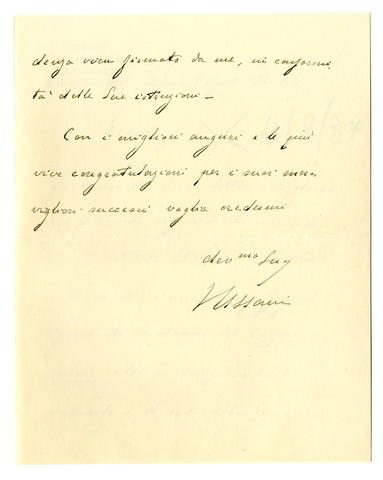 denza vien firmato da me, in conformi
tà delle Sue istruzioni –
Con i migliori auguri e le più
vive congratulazioni per i suoi mera
vigliosi successi voglia credermi
dev mo Suo